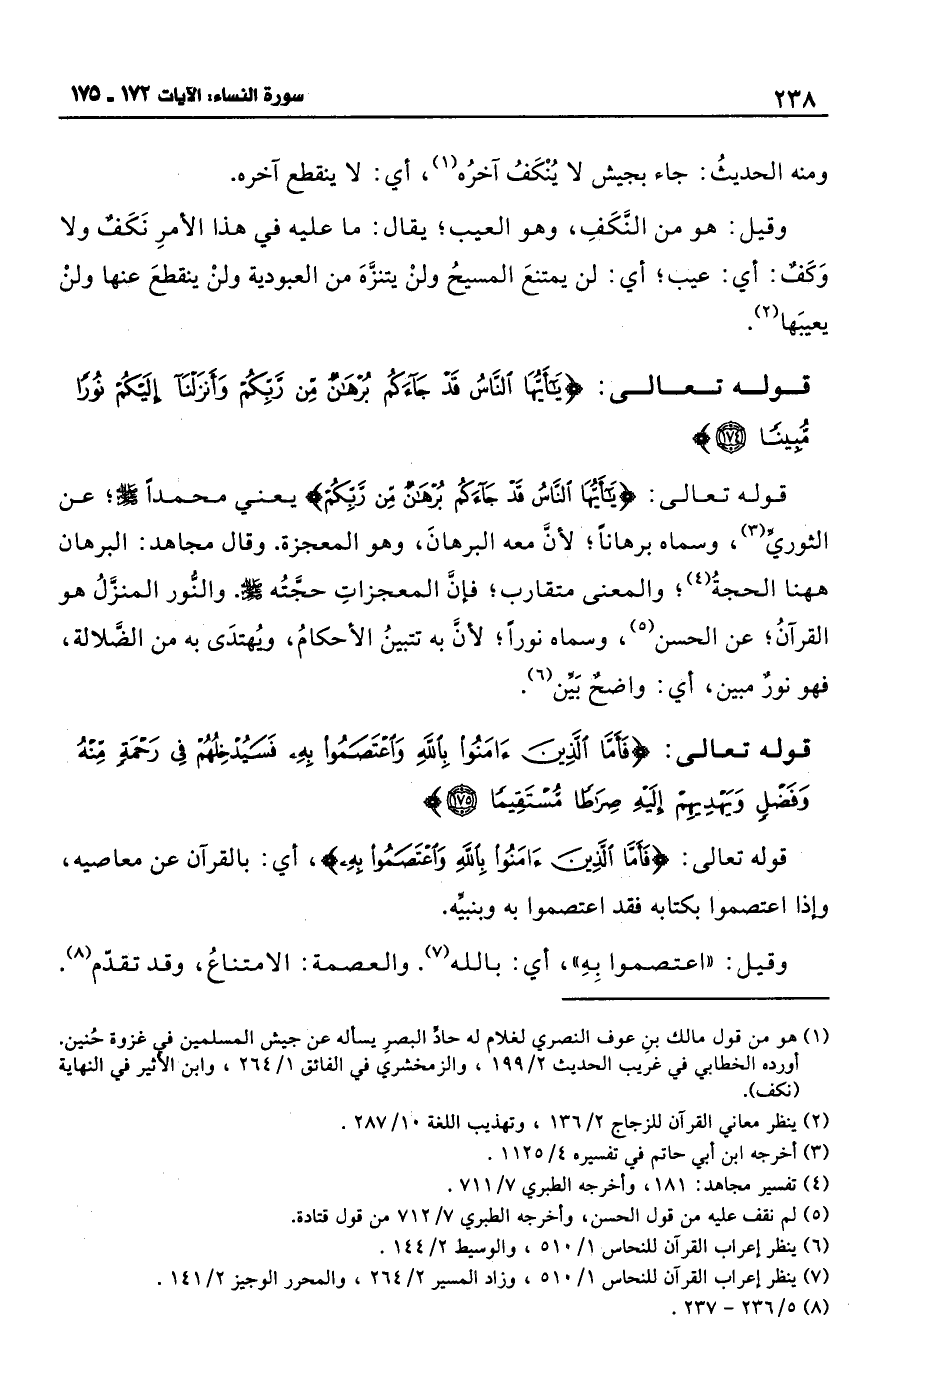 ٢٣٨ سورة النساء: الآيات ١٧٢ - ١٧٥
ومنه الحديثُ: جاء بجيش لا يُنْكَفُ آخرُه(١)، أي: لا ينقطع آخره.
وقيل: هو من النَّكَفِ، وهو العيب؛ يقال: ما عليه في هذا الأمرِ نَكَفٌ ولا
وَكَفٌ: أي: عيب؛ أي: لن يمتنعَ المسيحُ ولنْ يتنزَّهَ من العبودية ولنْ ينقطعَ عنها ولنْ
يعيبَها(٢).
قوله تعالى: ﴿يَٰٓأَيُّهَا ٱلنَّاسُ قَدۡ جَآءَكُم بُرۡهَٰنٌ مِّن رَّبِّكُمۡ وَأَنزَلۡنَآ إِلَيۡكُمۡ نُورًا
مُّبِينًا ١٧٤﴾
قوله تعالى: ﴿يَٰٓأَيُّهَا ٱلنَّاسُ قَدۡ جَآءَكُم بُرۡهَٰنٌ مِّن رَّبِّكُمۡ﴾ يعني محمداً ﷺ؛ عن
الثوريِّ(٣)، وسماه برهاناً؛ لأنَّ معه البرهانَ، وهو المعجزة. وقال مجاهد: البرهان
ههنا الحجةُ(٤)؛ والمعنى متقارب؛ فإنَّ المعجزاتِ حجَّتُه ﷺ. والنُّور المنزَّلُ هو
القرآنُ؛ عن الحسن(٥)، وسماه نوراً؛ لأنَّ به تتبينُ الأحكامُ، ويُهتدَى به من الضَّلالة،
فهو نورٌ مبين، أي: واضحٌ بَيِّن(٦).
قوله تعالى: ﴿فَأَمَّا ٱلَّذِينَ ءَامَنُواْ بِٱللَّهِ وَٱعۡتَصَمُواْ بِهِۦ فَسَيُدۡخِلُهُمۡ فِي رَحۡمَةٍ مِّنۡهُ
وَفَضۡلٍ وَيَهۡدِيهِمۡ إِلَيۡهِ صِرَٰطًا مُّسۡتَقِيمًا ١٧٥﴾
قوله تعالى: ﴿فَأَمَّا ٱلَّذِينَ ءَامَنُواْ بِٱللَّهِ وَٱعۡتَصَمُواْ بِهِۦ﴾، أي: بالقرآن عن معاصيه،
وإذا اعتصموا بكتابه فقد اعتصموا به وبنبيِّه.
وقيل: «اعتصموا بِهِ»، أي: بالله(٧). والعصمة: الامتناعُ، وقد تقدّم(٨).
(١) هو من قول مالك بنِ عوف النصري لغلام له حادِّ البصرِ يسأله عن جيش المسلمين في غزوة حُنين.
أورده الخطابي في غريب الحديث ١٩٩/٢ ، والزمخشري في الفائق ٢٦٤/١ ، وابن الأثير في النهاية
(نكف).
(٢) ينظر معاني القرآن للزجاج ١٣٦/٢ ، وتهذيب اللغة ٢٨٧/١٠ .
(٣) أخرجه ابن أبي حاتم في تفسيره ١١٢٥/٤ .
(٤) تفسير مجاهد: ١٨١، وأخرجه الطبري ٧١١/٧ .
(٥) لم نقف عليه من قول الحسن، وأخرجه الطبري ٧١٢/٧ من قول قتادة.
(٦) ينظر إعراب القرآن للنحاس ٥١٠/١ ، والوسيط ١٤٤/٢ .
(٧) ينظر إعراب القرآن للنحاس ٥١٠/١ ، وزاد المسير ٢٦٤/٢ ، والمحرر الوجيز ١٤١/٢ .
(٨) ٢٣٦/٥ - ٢٣٧ .